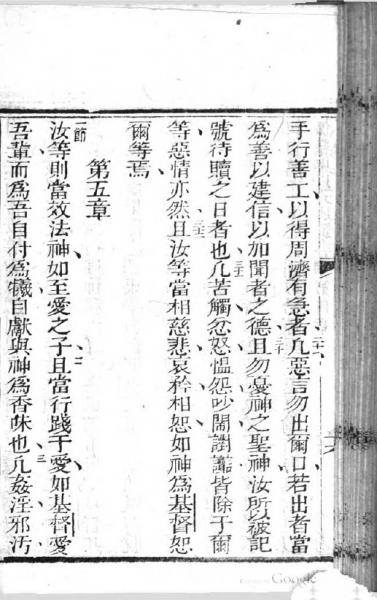 手行善工以得周濟有急者二十九凡惡言勿出爾口若出者當
爲善以建信以加聞者之德且三十勿憂神之聖神汝所以被記
號待贖之日者也三十一凡苦觸忿怒慍怨吵鬧譭謗皆除于爾
等惡情亦然三十二且汝等當相慈悲哀矜相恕如神爲基督恕
爾等焉
第五章
一節汝等則當效法神如至愛之子二且當行踐于愛如基督愛
吾輩而爲吾自付爲犧自獻與神爲香味也三凡姦淫邪汚
Google